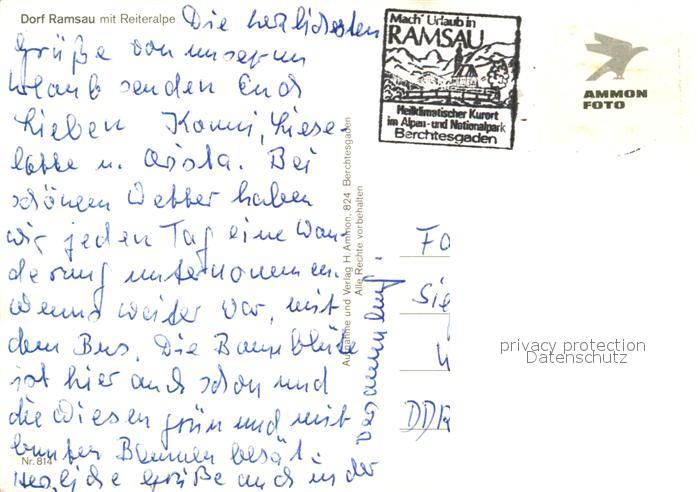 Dorf Ramsau mit Reiteralpe
Die herzlichsten
Grüße von unserem
Urlaub senden Euch
Lieben Konni, Liese-
lotte u. Christa. Bei
schönem Wetter haben
wir jeden Tag eine Wan-
derung unternommen.
Wenns weiter war, mit
dem Bus. Die Baumblüte
ist hier auch schon und
die Wiesen grün und mit
bunten Blumen besät.
Herzliche Grüße auch in der
Nr. 814
Aufnahme und Verlag H. Ammon, 824 Berchtesgaden
Alle Rechte vorbehalten
Mach' Urlaub in
RAMSAU
Heilklimatischer Kurort
im Alpen- und Nationalpark
Berchtesgaden
AMMON
FOTO
Fa
Sie
DDR
privacy protection
Datenschutz